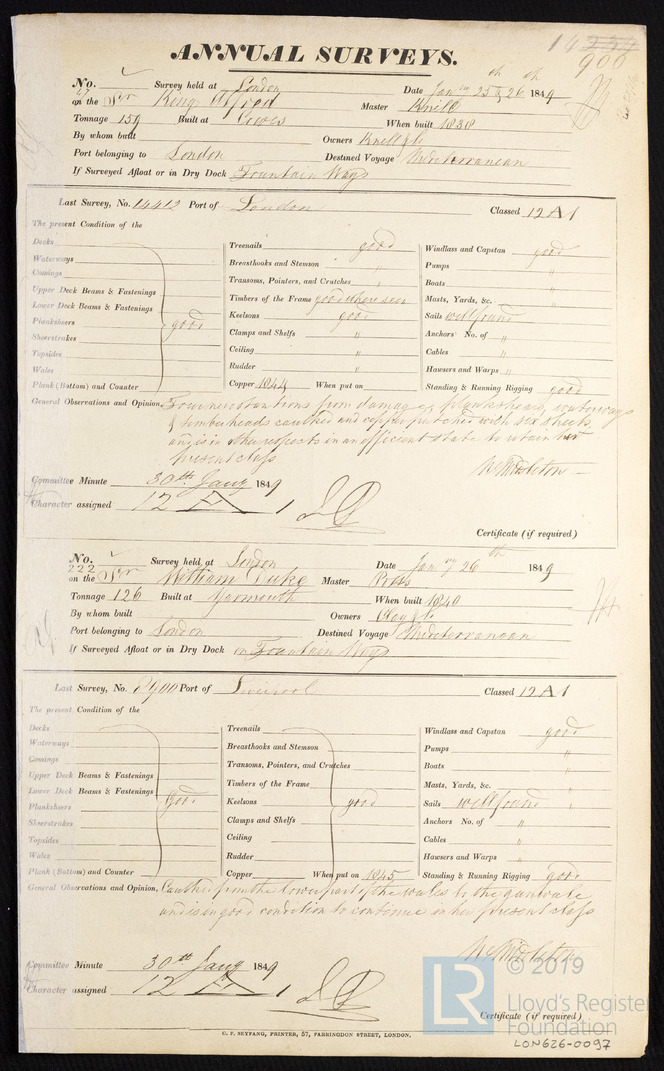 ANNUAL SURVEYS.
900
No. Survey held at London Date Jany 25th & 26th 1849
on the Sr King Alfred Master Knill
Tonnage 159 Built at Cowes When built 1838
By whom built Owners Knill & Co
Port belonging to London Destined Voyage Mediterranean
If Surveyed Afloat or in Dry Dock Fountain Ways
Last Survey, No. 14412 Port of London Classed 12 A 1
The present Condition of the
Decks
Waterways
Comings
Upper Deck Beams & Fastenings
Lower Deck Beams & Fastenings
Planksheers good
Sheerstrakes
Topsides
Wales
Plank (Bottom) and Counter
Treenails good
Breasthooks and Stemson "
Transoms, Pointers, and Crutches "
Timbers of the Frame good where seen
Keelsons good
Clamps and Shelfs "
Ceiling "
Rudder "
Copper 1844 When put on
Windlass and Capstan good
Pumps "
Boats "
Masts, Yards, &c. "
Sails well found
Anchors No. of "
Cables "
Hawsers and Warps "
Standing & Running Rigging good
General Observations and Opinion, Four new stantions from damage, planksheers, waterways
& timberheads caulked and copper patched with six sheets
and is in other respects in an efficient state to retain her
present class
W Middleton
Committee Minute 30th Jany 1849
Character assigned 12 A 1
Certificate (if required)
No. 222 Survey held at London Date Jany 26th 1849
on the Sr William Duke Master Ross
Tonnage 126 Built at Yarmouth When built 1840
By whom built Owners
Port belonging to London Destined Voyage Mediterranean
If Surveyed Afloat or in Dry Dock on Fountain Ways
Last Survey, No. 8900 Port of Liverpool Classed 12 A 1
The present Condition of the
Decks
Waterways
Comings
Upper Deck Beams & Fastenings
Lower Deck Beams & Fastenings
Planksheers Good
Sheerstrakes
Topsides
Wales
Plank (Bottom) and Counter
Treenails
Breasthooks and Stemson
Transoms, Pointers, and Crutches
Timbers of the Frame
Keelsons good
Clamps and Shelfs
Ceiling
Rudder
Copper When put on 1845
Windlass and Capstan good
Pumps "
Boats "
Masts, Yards, &c. "
Sails well found
Anchors No. of "
Cables "
Hawsers and Warps "
Standing & Running Rigging good
General Observations and Opinion, Caulked from the lower part of the wales to the gunwale
and is in good condition to continue in her present class
W Middleton
Committee Minute 30th Jany 1849
Character assigned 12 A 1
Certificate (if required)
C. F. SEYFANG, PRINTER, 57, FARRINGDON STREET, LONDON.
LR © 2019
Lloyd's Register
Foundation
LON626-0097